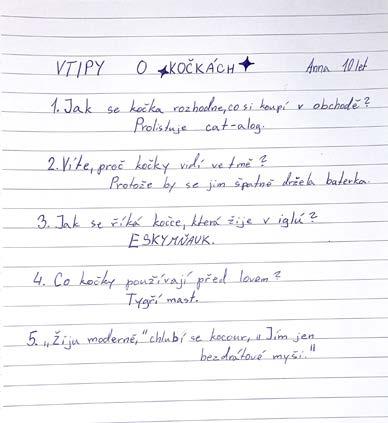 VTIPY O KOČKÁCH Anna 10 let
1. Jak se kočka rozhodne, co si koupí v obchodě?
Prolistuje cat-alog.
2. Víte, proč kočky vidí ve tmě?
Protože by se jim špatně držela baterka.
3. Jak se říká kočce, která žije v iglú?
ESKYMŇAUK.
4. Co kočky používají před lovem?
Tygří mast.
5. „Žiju moderně," chlubí se kocour, „Jím jen
bezdrátové myši."